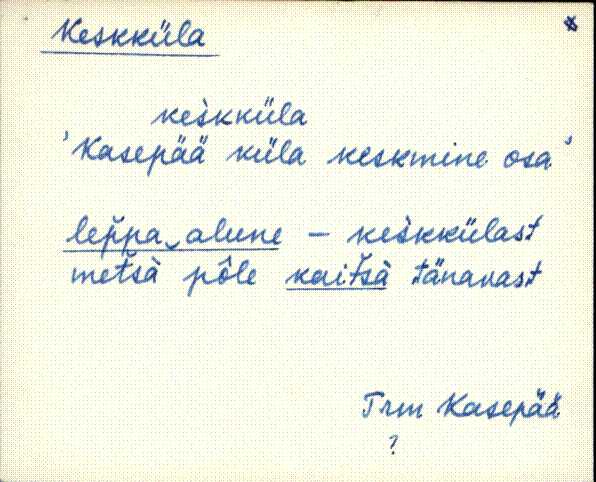 Keskküla
keskküla
'Kasepää küla keskmine osa'
lep̆pa‿alune – keskkülast
met̆sà põle kait̆sà tänavast
Trm Kasepää
?